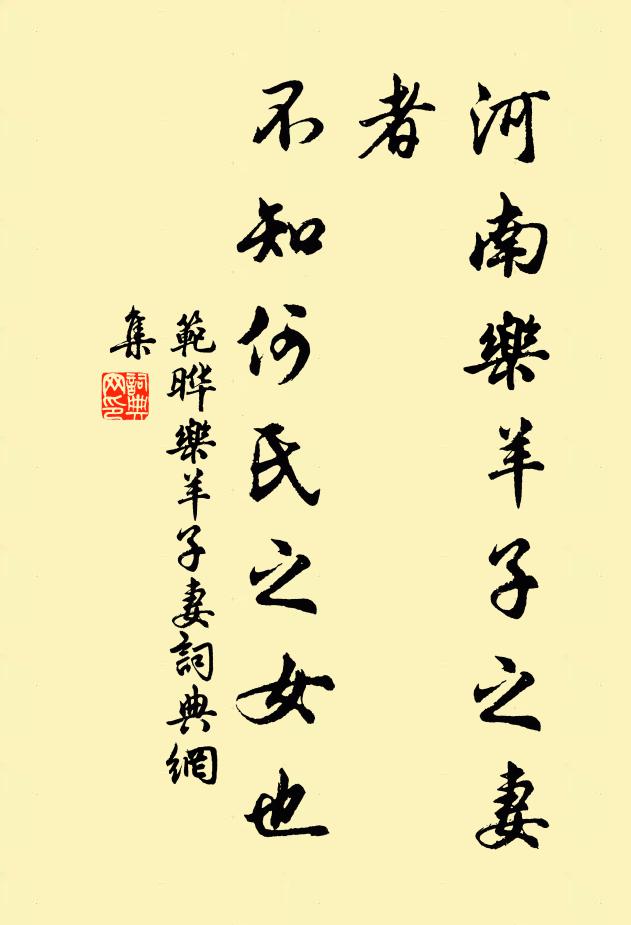 河南樂羊子之妻
者
不知何氏之女也
範晔樂羊子妻詞典網
集
詞典
网印